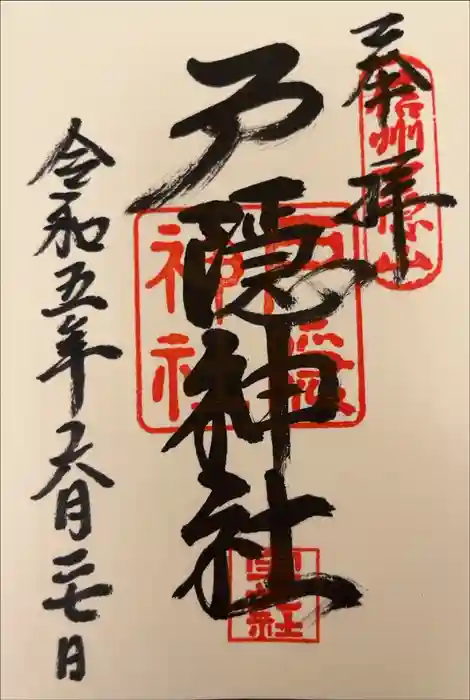 奉拝
信州戸隠山
戸隱神社
戸隠神社
令和五年六月二七日